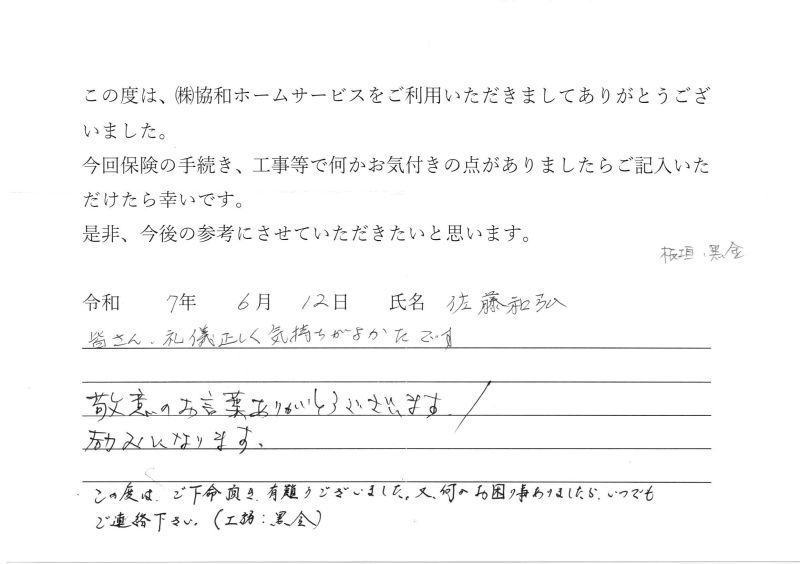 この度は、㈱協和ホームサービスをご利用いただきましてありがとうござ
いました。
今回保険の手続き、工事等で何かお気付きの点がありましたらご記入いた
だけたら幸いです。
是非、今後の参考にさせていただきたいと思います。
板垣、黒金
令和 7年 6月 12日 氏名 佐藤和弘
皆さん、礼儀正しく気持ちがよかたです
敬意のお言葉ありがとうございます。
励みになります。
この度は、ご下命頂き、有難うございました。又、何かお困り事ありましたら、いつでも
ご連絡下さい。(工務:黒金)